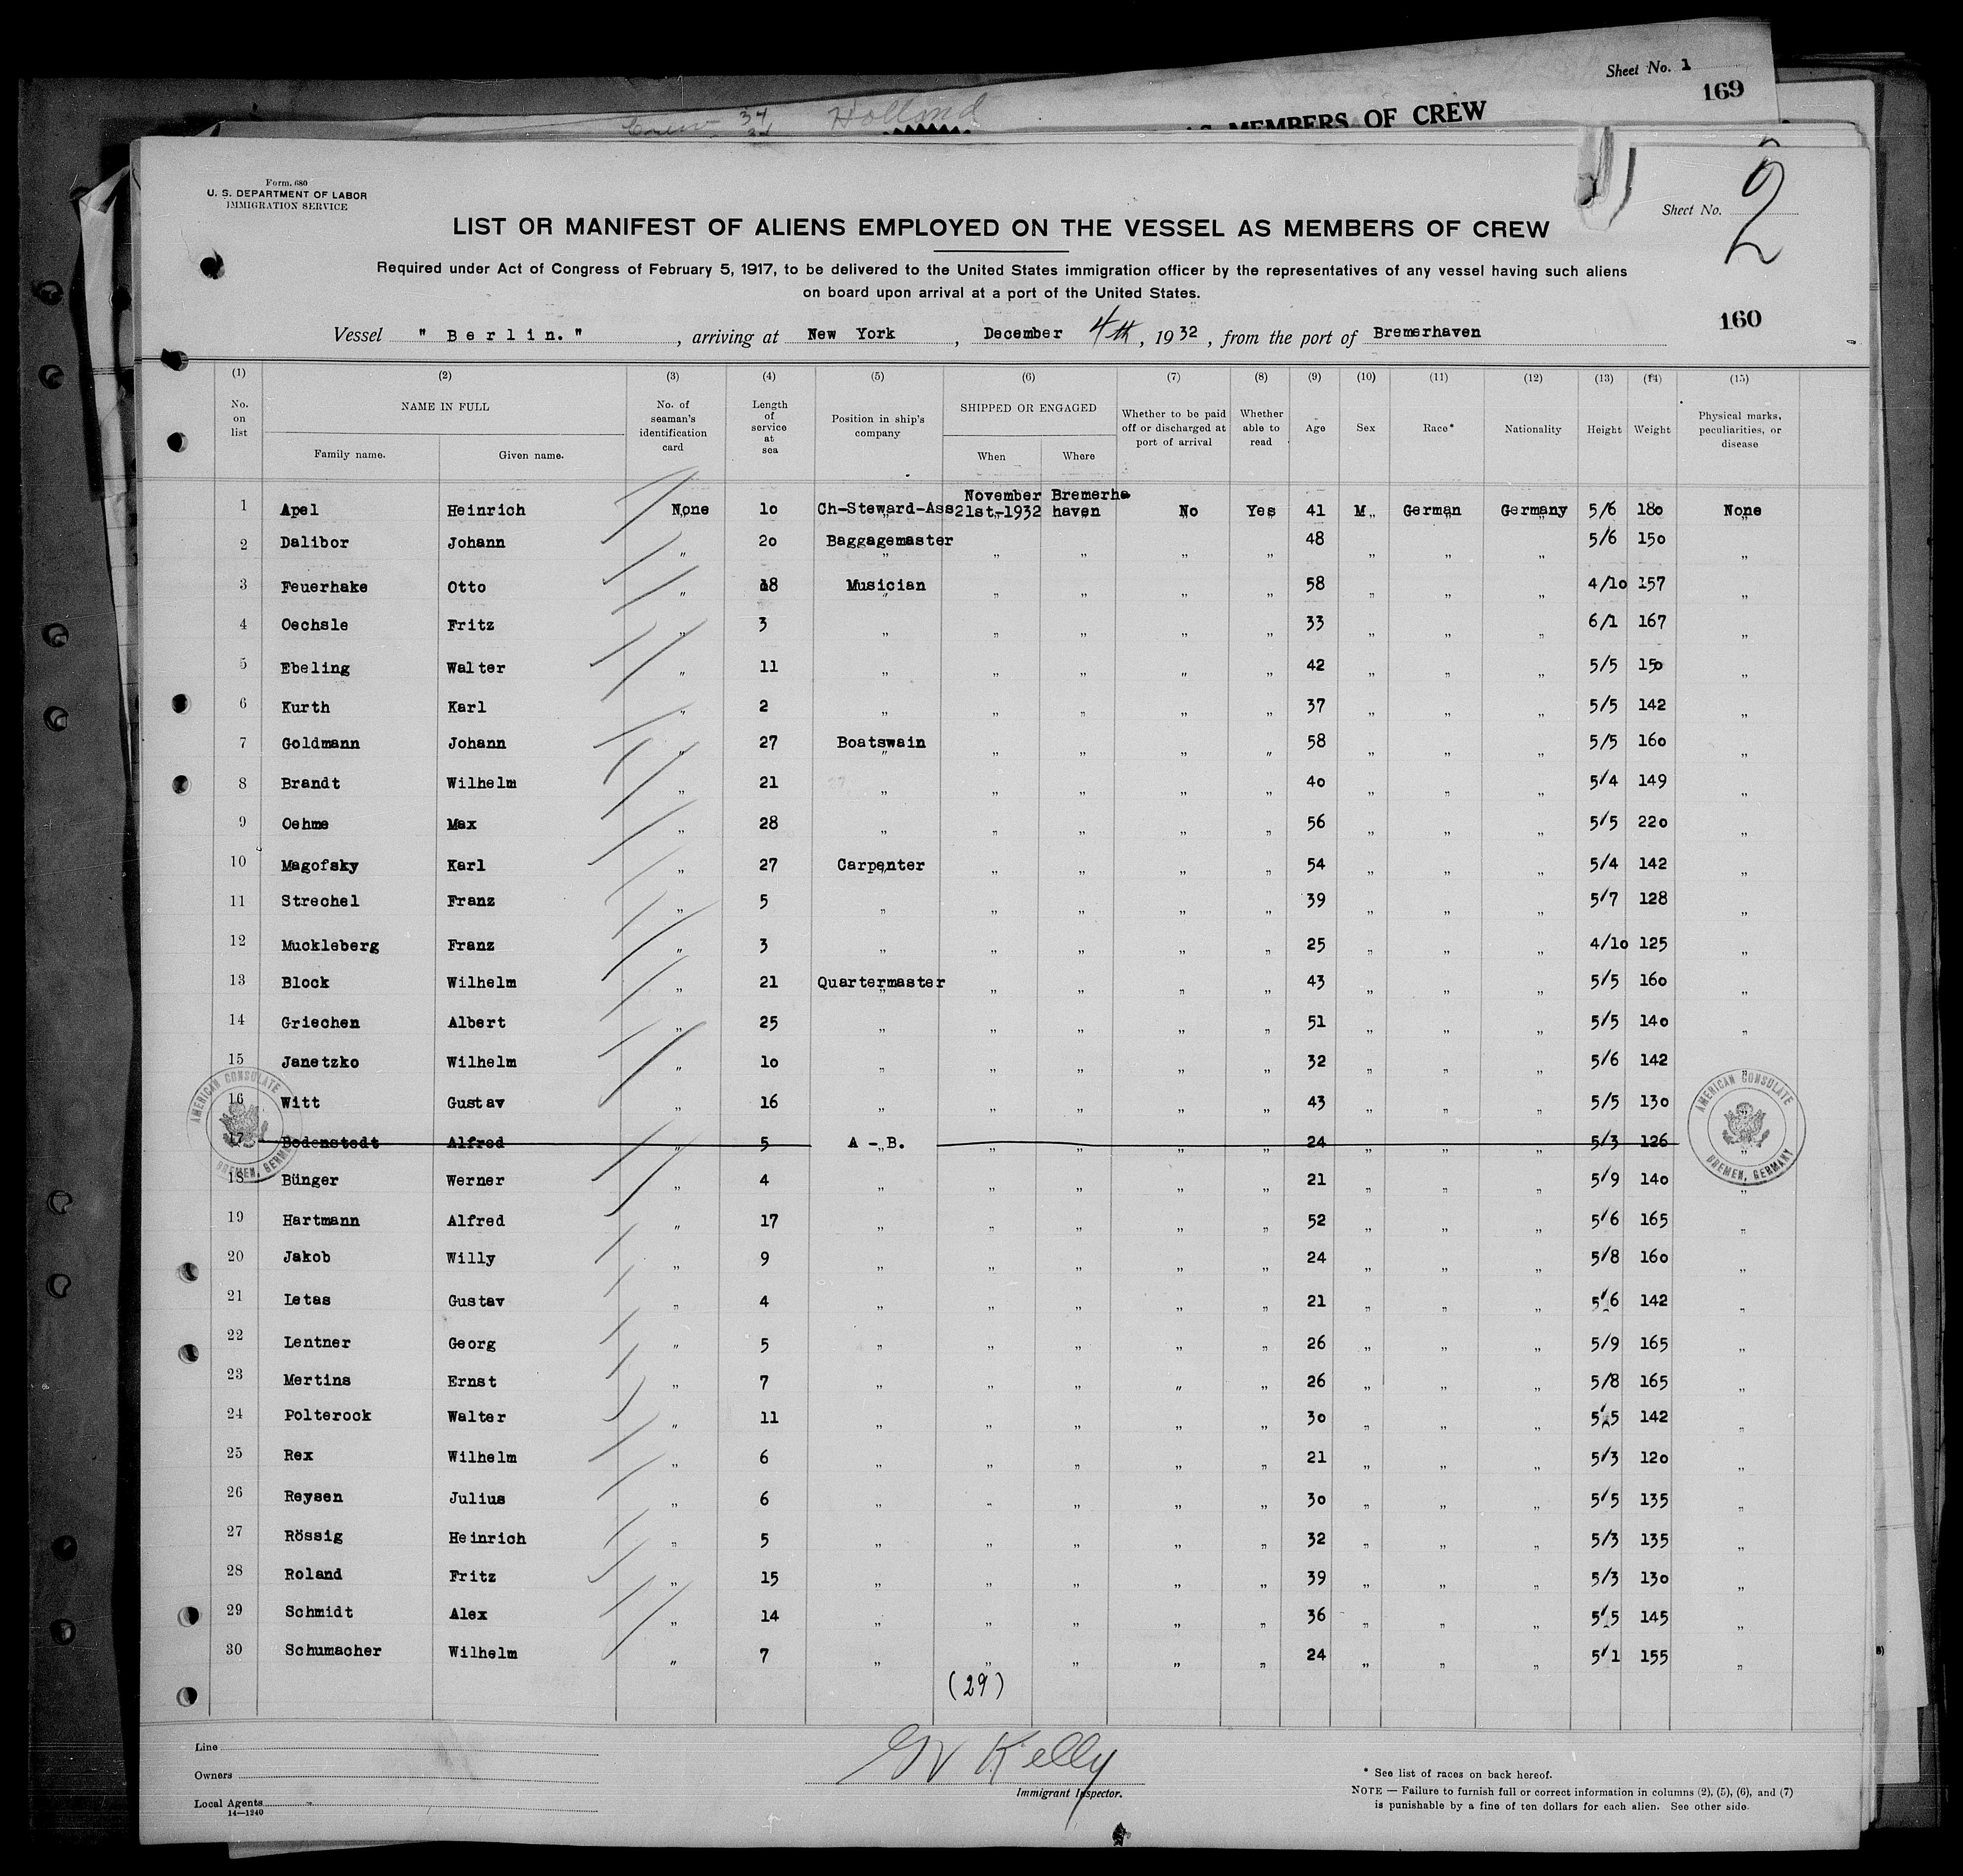 Sheet No. 1
169
Crew 34 Holland
34
AS MEMBERS OF CREW
Form. 680
U. S. DEPARTMENT OF LABOR
IMMIGRATION SERVICE
Sheet No. 2
LIST OR MANIFEST OF ALIENS EMPLOYED ON THE VESSEL AS MEMBERS OF CREW
Required under Act of Congress of February 5, 1917, to be delivered to the United States immigration officer by the representatives of any vessel having such aliens
on board upon arrival at a port of the United States.
160
Vessel " Berlin. ", arriving at New York, December 4th, 1932, from the port of Bremerhaven
(1) (2) (3) (4) (5) (6) (7) (8) (9) (10) (11) (12) (13) (14) (15)
No. on list NAME IN FULL Family name. Given name. No. of seaman's identification card Length of service at sea Position in ship's company SHIPPED OR ENGAGED When Where Whether to be paid off or discharged at port of arrival Whether able to read Age Sex Race* Nationality Height Weight Physical marks, peculiarities, or disease
1 Apel Heinrich None 10 Ch-Steward-Ass November 21st-1932 Bremerha haven No Yes 41 M German Germany 5/6 180 None
2 Dalibor Johann " 20 Baggagemaster " " " " 48 " " " 5/6 150 "
3 Feuerhake Otto " 18 Musician " " " " 58 " " " 4/10 157 "
4 Oechsle Fritz " 3 " " " " " 33 " " " 6/1 167 "
5 Ebeling Walter " 11 " " " " " 42 " " " 5/5 150 "
6 Kurth Karl " 2 " " " " " 37 " " " 5/5 142 "
7 Goldmann Johann " 27 Boatswain " " " " 58 " " " 5/5 160 "
8 Brandt Wilhelm " 21 " " " " " 40 " " " 5/4 149 "
9 Oehme Max " 28 " " " " " 56 " " " 5/5 220 "
10 Magofsky Karl " 27 Carpenter " " " " 54 " " " 5/4 142 "
11 Strechel Franz " 5 " " " " " 39 " " " 5/7 128 "
12 Muckleberg Franz " 3 " " " " " 25 " " " 4/10 125 "
13 Block Wilhelm " 21 Quartermaster " " " " 43 " " " 5/5 160 "
14 Griechen Albert " 25 " " " " " 51 " " " 5/5 140 "
15 Janetzko Wilhelm " 10 " " " " " 32 " " " 5/6 142 "
16 Witt Gustav " 16 " " " " " 43 " " " 5/5 130 "
17 Bodenstedt Alfred " 5 A - B. " " " " 24 " " " 5/3 126 "
18 Bünger Werner " 4 " " " " " 21 " " " 5/9 140 "
19 Hartmann Alfred " 17 " " " " " 52 " " " 5/6 165 "
20 Jakob Willy " 9 " " " " " 24 " " " 5/8 160 "
21 Letas Gustav " 4 " " " " " 21 " " " 5/6 142 "
22 Lentner Georg " 5 " " " " " 26 " " " 5/9 165 "
23 Mertins Ernst " 7 " " " " " 26 " " " 5/8 165 "
24 Polterock Walter " 11 " " " " " 30 " " " 5/5 142 "
25 Rex Wilhelm " 6 " " " " " 21 " " " 5/3 120 "
26 Reysen Julius " 6 " " " " " 30 " " " 5/5 135 "
27 Rössig Heinrich " 5 " " " " " 32 " " " 5/3 135 "
28 Roland Fritz " 15 " " " " " 39 " " " 5/3 130 "
29 Schmidt Alex " 14 " " " " " 36 " " " 5/5 145 "
30 Schumacher Wilhelm " 7 " " " " " 24 " " " 5/1 155 "
AMERICAN CONSULATE BREMEN, GERMANY
AMERICAN CONSULATE BREMEN, GERMANY
(29)
Line
Owners
Local Agents
14—1240
GV Kelly
Immigrant Inspector.
* See list of races on back hereof.
NOTE — Failure to furnish full or correct information in columns (2), (5), (6), and (7)
is punishable by a fine of ten dollars for each alien. See other side.